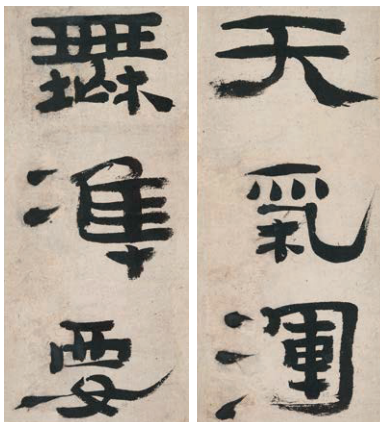 天氣渾
無準要